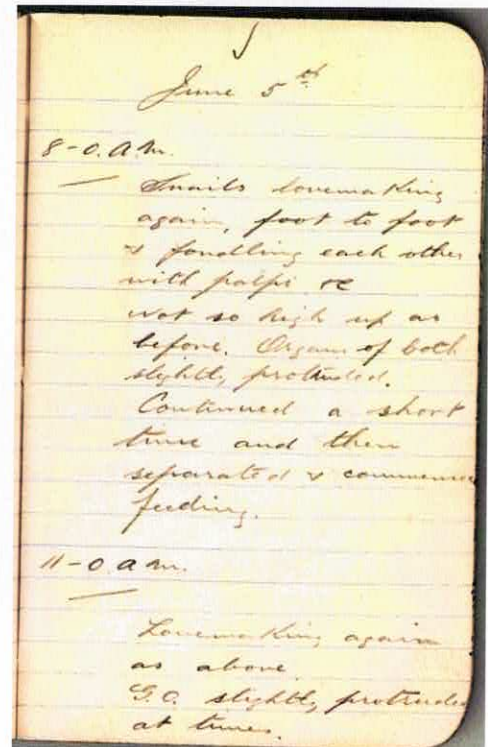 June 5th
8-0. A.M.
Snails lovemaking
again, foot to foot
& fondling each other
with palpi &c
not so high up as
before. Organs of both
slightly protruded.
Continued a short
time and then
separated & commence
feeding.
11-0 a.m.
Lovemaking again
as above.
G.O. slightly protruded
at times.